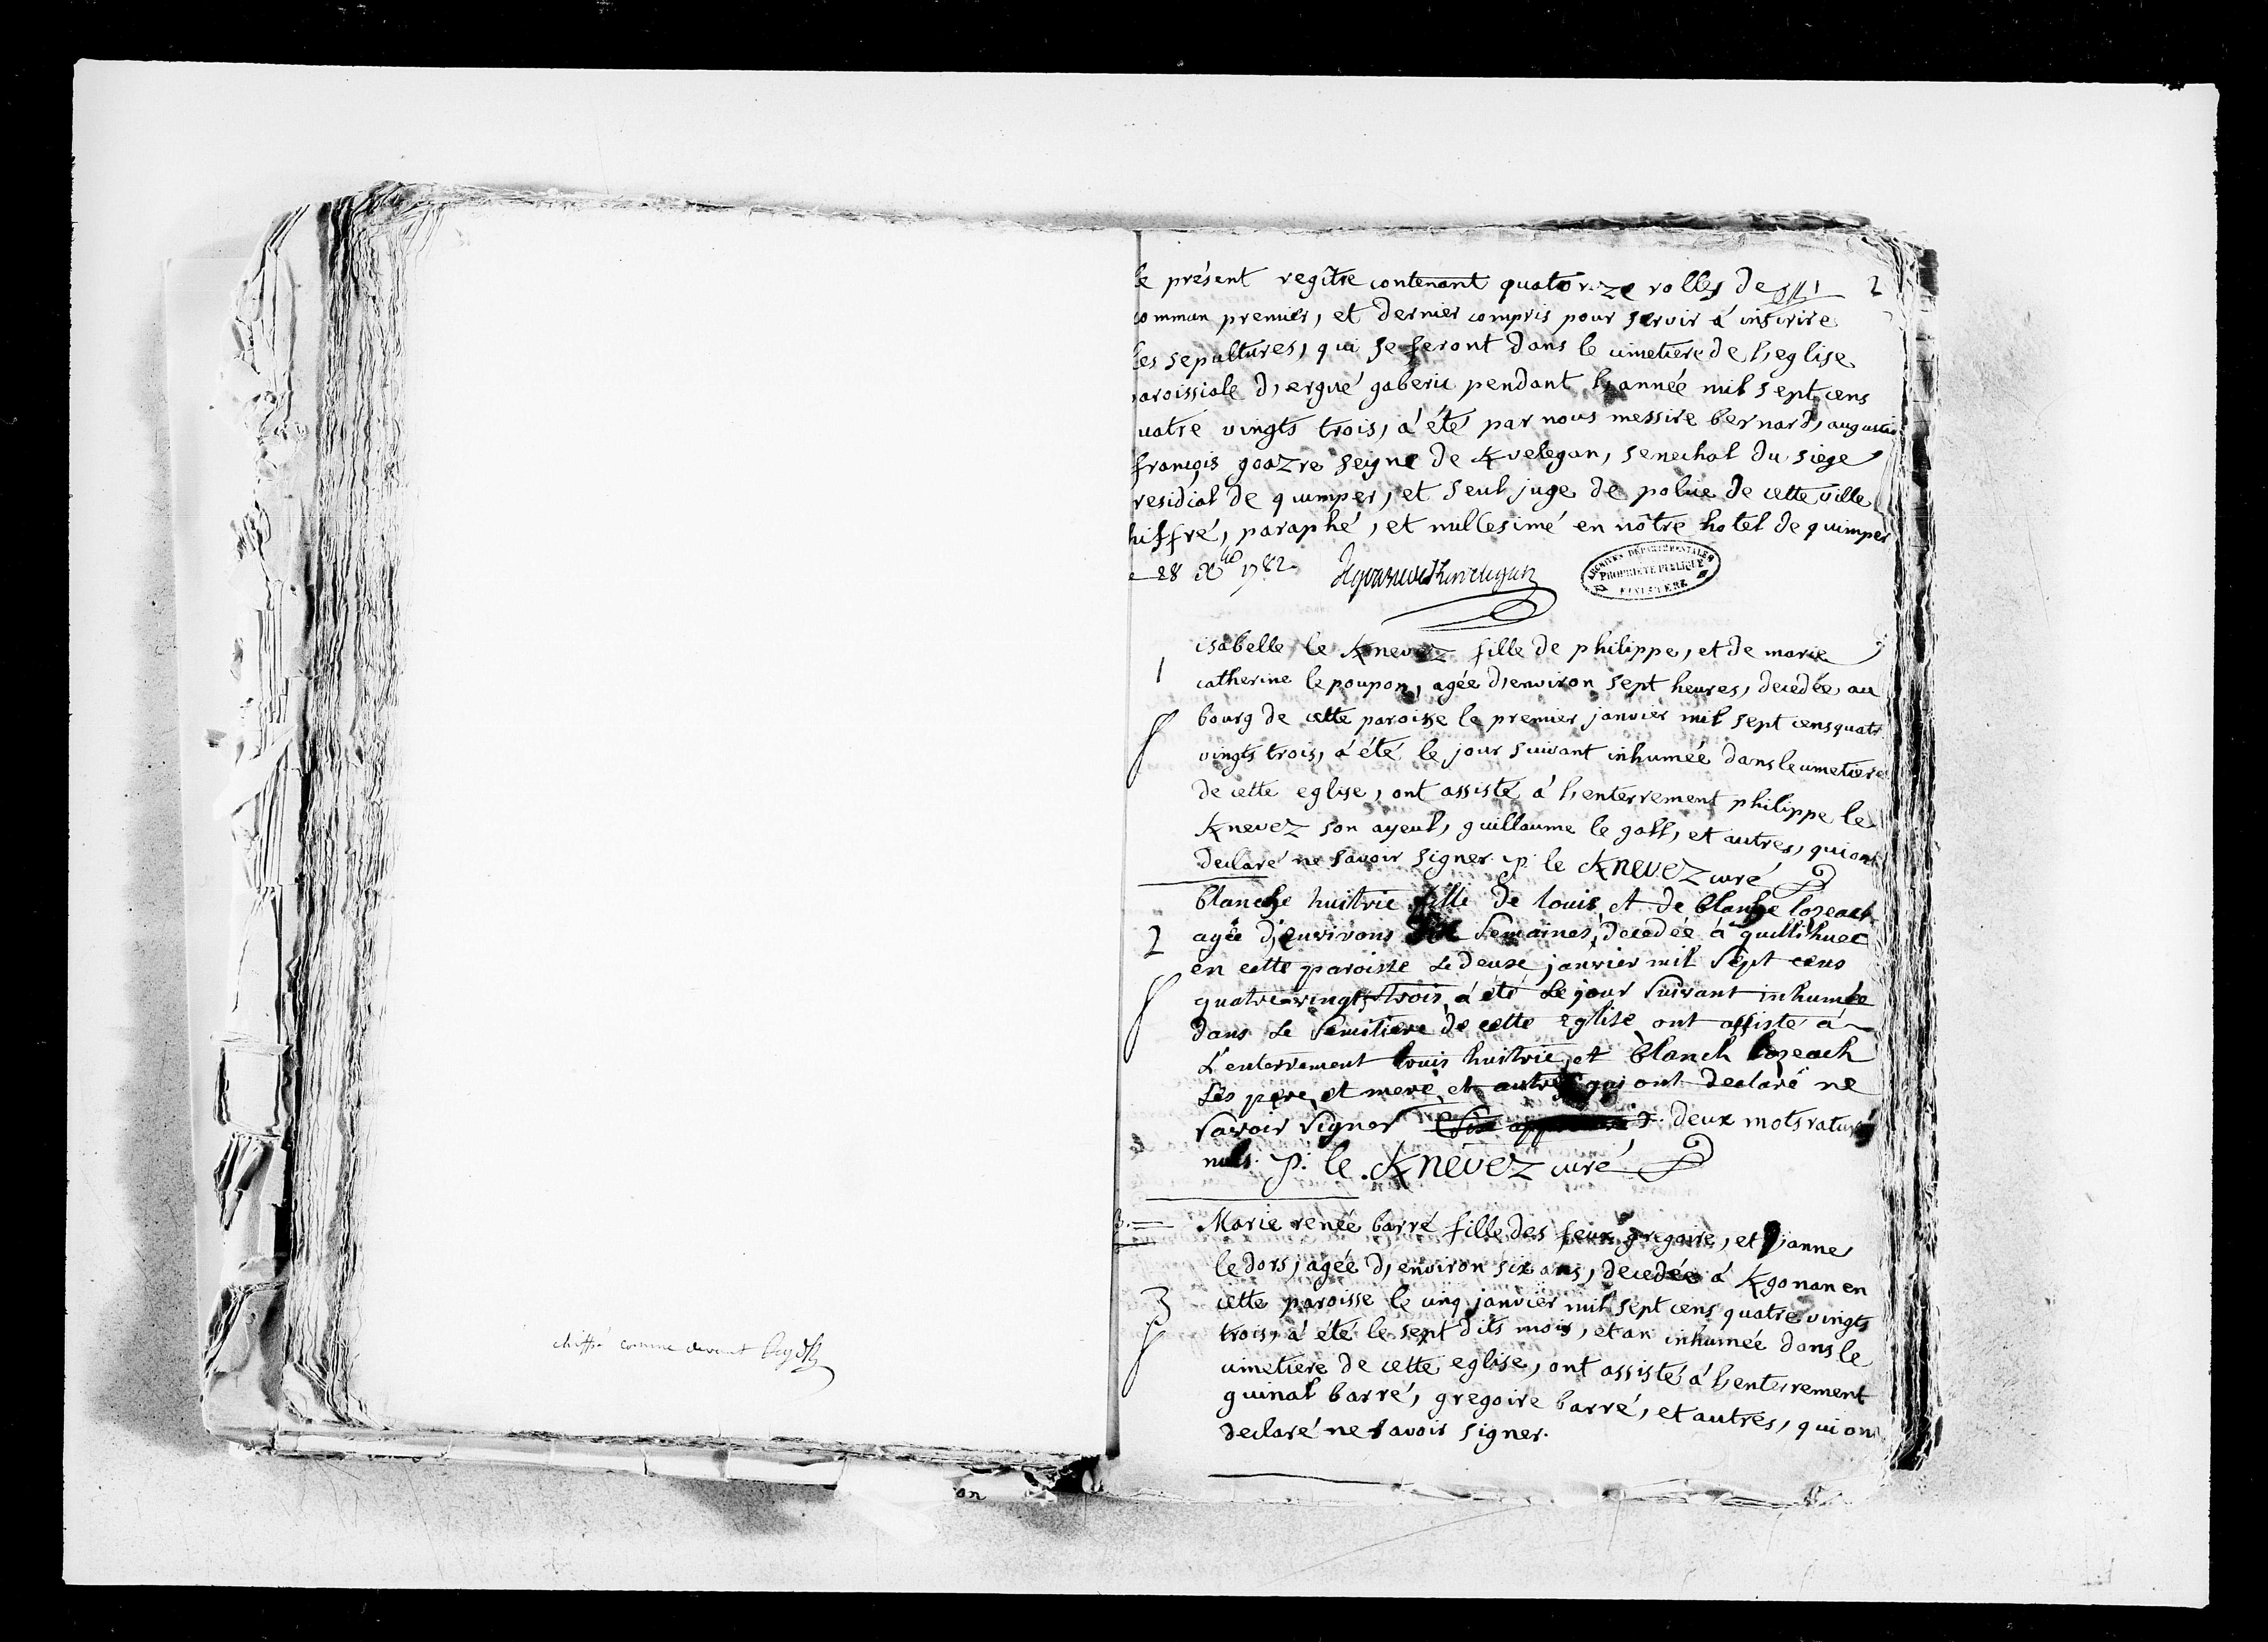 chiffré comme devant
le présent regître contenant quatorze rolles de
commun premier, et dernier compris pour servir à inscrire
les sepultures, qui se feront dans le cimetiere de l,eglise
paroissiale d,ergué gaberic pendant l,année mil sept cens
quatre vingts trois, a été par nous messire bernard, augustin
françois goazre seigne de Kvelegan, senechal du siege
presidial de quimper, et seul juge de police de cette ville
chiffré, paraphé, et millesimé en nôtre hotel de quimper
28 Xbre 1782.
2
ARCHIVES DÉPARTEMENTALES
PROPRIÉTÉ PUBLIQUE
FINISTÈRE
1
isabelle le Knevez fille de philippe, et de marie
catherine le poupon, agée d,environ sept heures, decedée au
bourg de cette paroisse le premier janvier mil sept cens quatre
vingts trois, a été le jour suivant inhumée dans le cimetiere
de cette eglise, ont assisté à l,enterrement philippe le
Knevez son ayeul, guillaume le goff, et autres, qui ont
declaré ne savoir signer. p. le Knevez curé
S
2
blanche huitric fille de louis et de blanche lozeach
agée d,environs six semaines, decedée à quillihuec
en cette paroisse le deuxe janvier mil sept cens
quatre-vingts trois, a été le jour suivant inhumée
dans le semitiere de cette eglise ont assisté a
l'enterrement louis huitric, et blanch lozeach
ses pere, et mere, et autres qui ont declaré ne
savoir signer deux mots raturés
nuls. p. le Knevez curé
S
3.
Marie renée barré fille des feux gregoire, et jeanne
le dors, agée d,environ six ans, decedée à Kgonan en
cette paroisse le cinq janvier mil sept cens quatre vingts
trois, a été le sept dits mois, et an inhumée dans le
cimetiere de cette eglise, ont assisté à l,enterrement
guinal barré, gregoire barré, et autres, qui ont
declaré ne savoir signer.
3
S